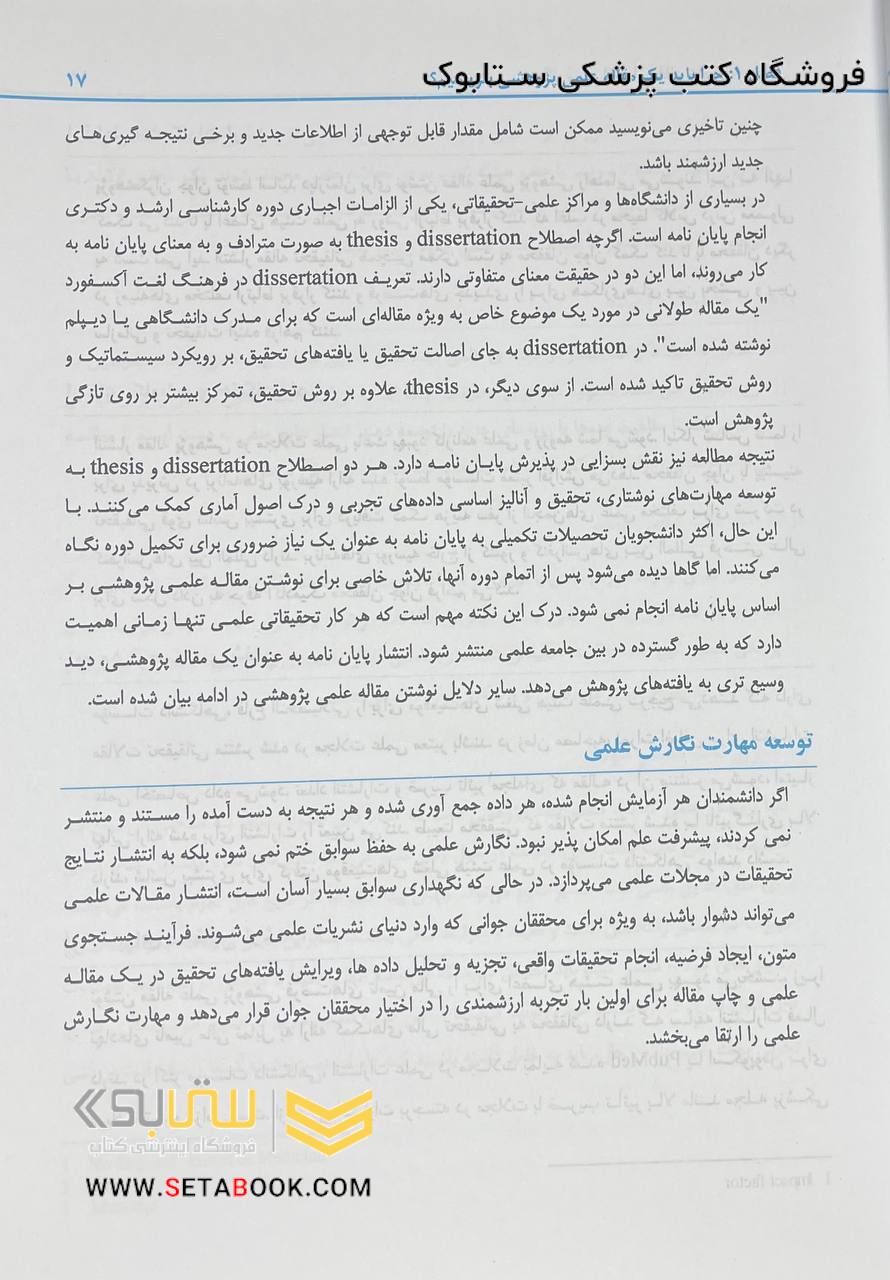 فروشگاه کتب پزشکی ستابوک
۱۷
چنین تاخیری می‌نویسید ممکن است شامل مقدار قابل توجهی از اطلاعات جدید و برخی نتیجه گیری‌های
جدید ارزشمند باشد.
در بسیاری از دانشگاه‌ها و مراکز علمی-تحقیقاتی، یکی از الزامات اجباری دوره کارشناسی ارشد و دکتری
انجام پایان نامه است. اگرچه اصطلاح dissertation و thesis به صورت مترادف و به معنای پایان نامه به
کار می‌روند، اما این دو در حقیقت معنای متفاوتی دارند. تعریف dissertation در فرهنگ لغت آکسفورد
"یک مقاله طولانی در مورد یک موضوع خاص به ویژه مقاله‌ای است که برای مدرک دانشگاهی یا دیپلم
نوشته شده است". در dissertation به جای اصالت تحقیق یا یافته‌های تحقیق، بر رویکرد سیستماتیک و
روش تحقیق تاکید شده است. از سوی دیگر، در thesis، علاوه بر روش تحقیق، تمرکز بیشتر بر روی تازگی
پژوهش است.
نتیجه مطالعه نیز نقش بسزایی در پذیرش پایان نامه دارد. هر دو اصطلاح dissertation و thesis به
توسعه مهارت‌های نوشتاری، تحقیق و آنالیز اساسی داده‌های تجربی و درک اصول آماری کمک می‌کنند. با
این حال، اکثر دانشجویان تحصیلات تکمیلی به پایان نامه به عنوان یک نیاز ضروری برای تکمیل دوره نگاه
می‌کنند. اما گاها دیده می‌شود پس از اتمام دوره آنها، تلاش خاصی برای نوشتن مقاله علمی پژوهشی بر
اساس پایان نامه انجام نمی شود. درک این نکته مهم است که هر کار تحقیقاتی علمی تنها زمانی اهمیت
دارد که به طور گسترده در بین جامعه علمی منتشر شود. انتشار پایان نامه به عنوان یک مقاله پژوهشی، دید
وسیع تری به یافته‌های پژوهش می‌دهد. سایر دلایل نوشتن مقاله علمی پژوهشی در ادامه بیان شده است.
توسعه مهارت نگارش علمی
اگر دانشمندان هر آزمایش انجام شده، هر داده جمع آوری شده و هر نتیجه به دست آمده را مستند و منتشر
نمی کردند، پیشرفت علم امکان پذیر نبود. نگارش علمی به حفظ سوابق ختم نمی شود، بلکه به انتشار نتایج
تحقیقات در مجلات علمی می‌پردازد. در حالی که نگهداری سوابق بسیار آسان است، انتشار مقالات علمی
می‌تواند دشوار باشد، به ویژه برای محققان جوانی که وارد دنیای نشریات علمی می‌شوند. فرآیند جستجوی
متون، ایجاد فرضیه، انجام تحقیقات واقعی، تجزیه و تحلیل داده ها، ویرایش یافته‌های تحقیق در یک مقاله
علمی و چاپ مقاله برای اولین بار تجربه ارزشمندی را در اختیار محققان جوان قرار می‌دهد و مهارت نگارش
علمی را ارتقا می‌بخشد.
ستابوک
فروشگاه اینترنتی کتاب
WWW.SETABOOK.COM